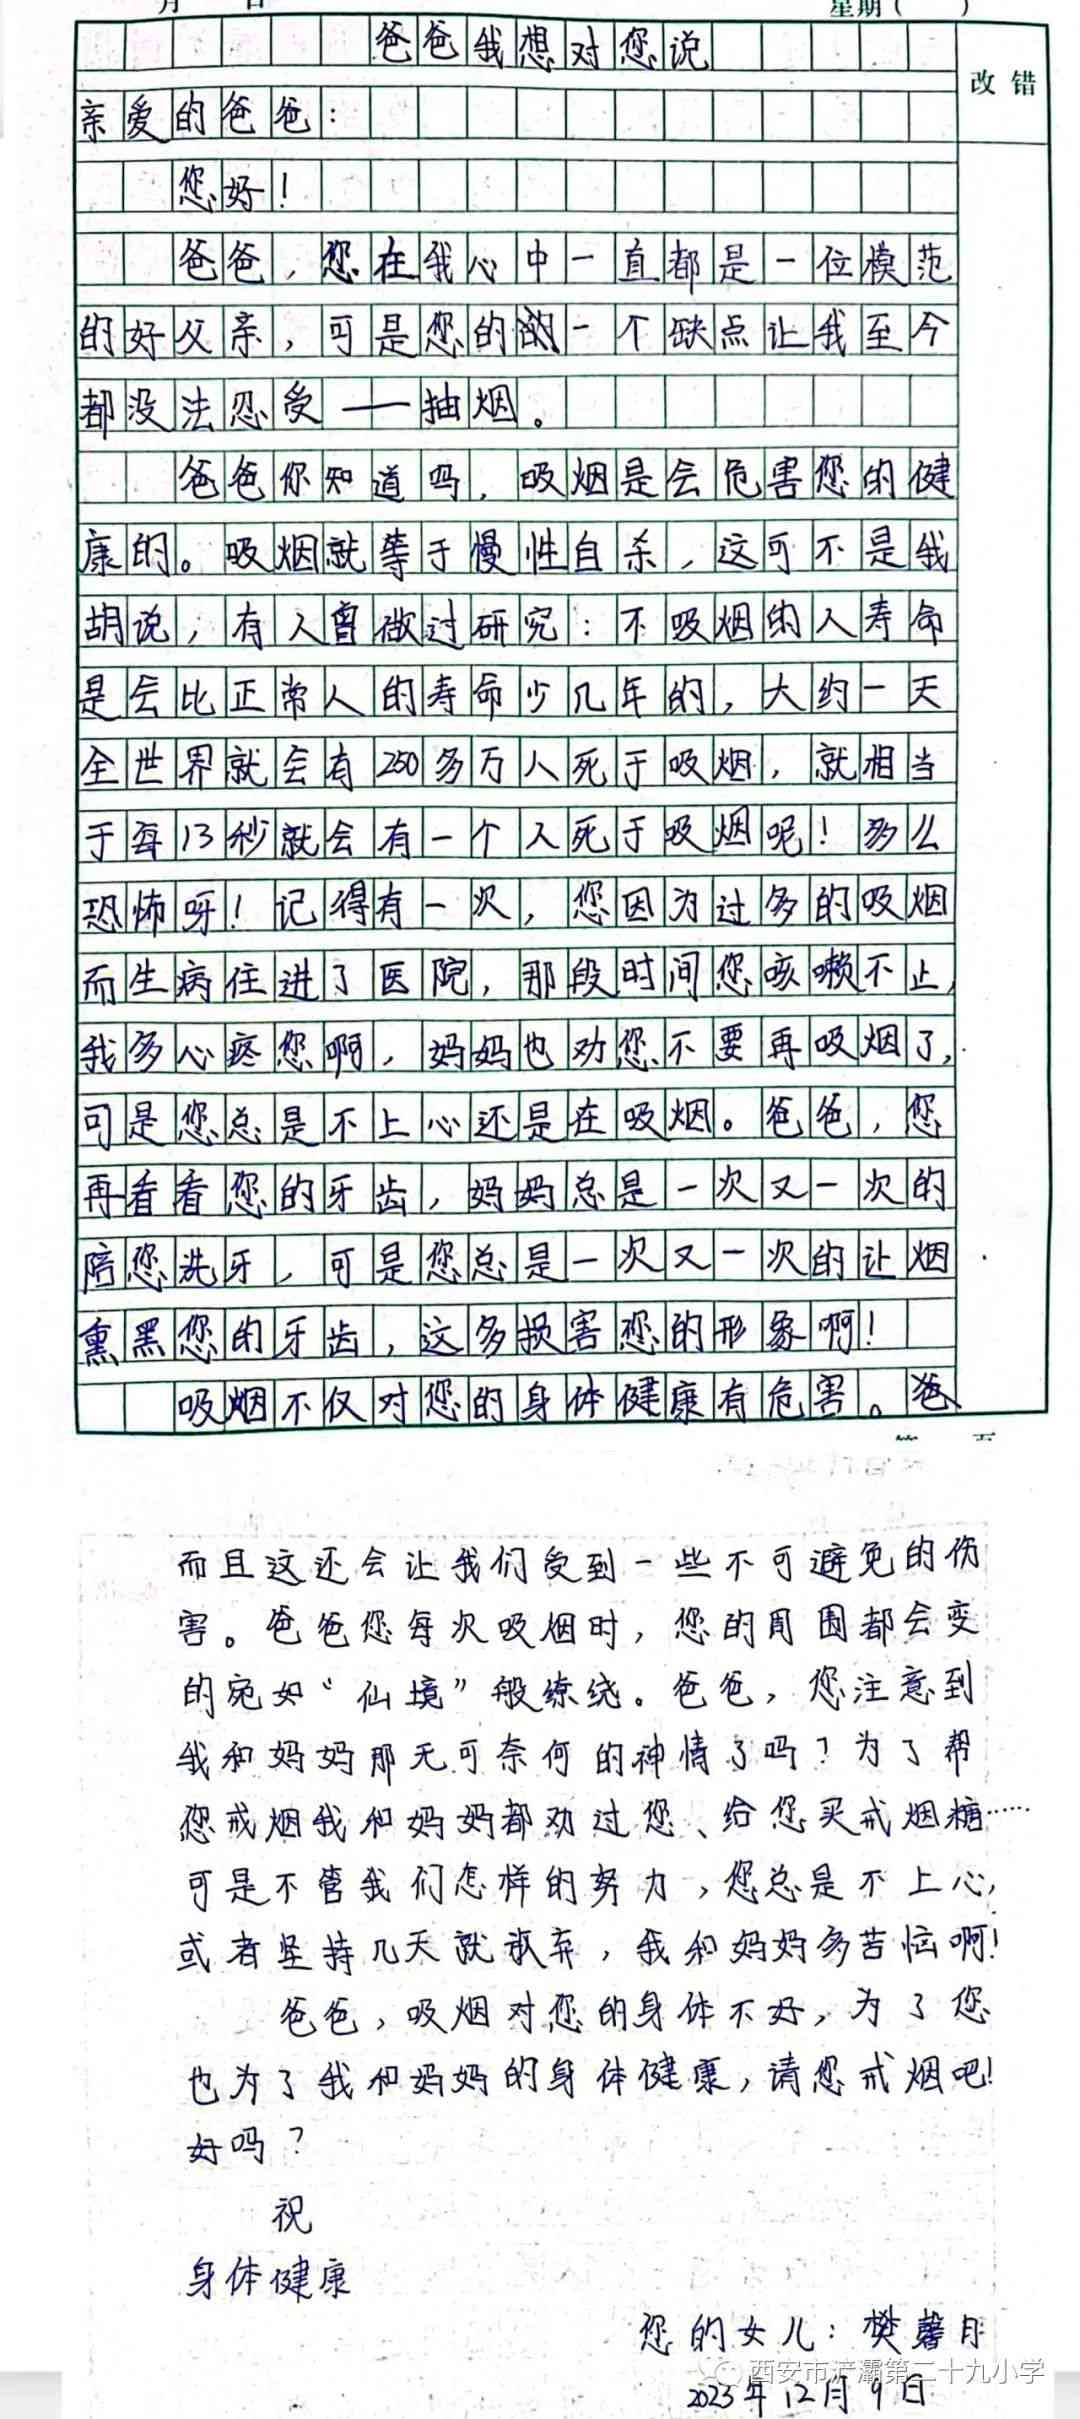 月 日 星期( )
爸爸我想对您说
改错
亲爱的爸爸:
您好!
爸爸,您在我心中一直都是一位模范
的好父亲,可是您的一个缺点让我至今
都没法忍受——抽烟。
爸爸你知道吗,吸烟是会危害您的健
康的。吸烟就等于慢性自杀,这可不是我
胡说,有人曾做过研究:不吸烟的人寿命
是会比正常人的寿命少几年的,大约一天
全世界就会有250多万人死于吸烟,就相当
于每13秒就会有一个人死于吸烟呢!多么
恐怖呀!记得有一次,您因为过多的吸烟
而生病住进了医院,那段时间您咳嗽不止,
我多心疼您啊,妈妈也劝您不要再吸烟了,
可是您总是不上心还是在吸烟。爸爸,您
再看看您的牙齿,妈妈总是一次又一次的
陪您洗牙,可是您总是一次又一次的让烟
熏黑您的牙齿,这多损害您的形象啊!
吸烟不仅对您的身体健康有危害。爸
而且这还会让我们受到一些不可避免的伤
害。爸爸您每次吸烟时,您的周围都会变
的宛如“仙境”般缭绕。爸爸,您注意到
我和妈妈那无可奈何的神情了吗?为了帮
您戒烟我和妈妈都劝过您、给您买戒烟糖……
可是不管我们怎样的努力,您总是不上心,
或者坚持几天就放弃,我和妈妈多苦恼啊!
爸爸,吸烟对您的身体不好,为了您
也为了我和妈妈的身体健康,请您戒烟吧!
好吗?
祝
身体健康
您的女儿:樊馨月
西安市浐灞第二十九小学
2023年12月9日